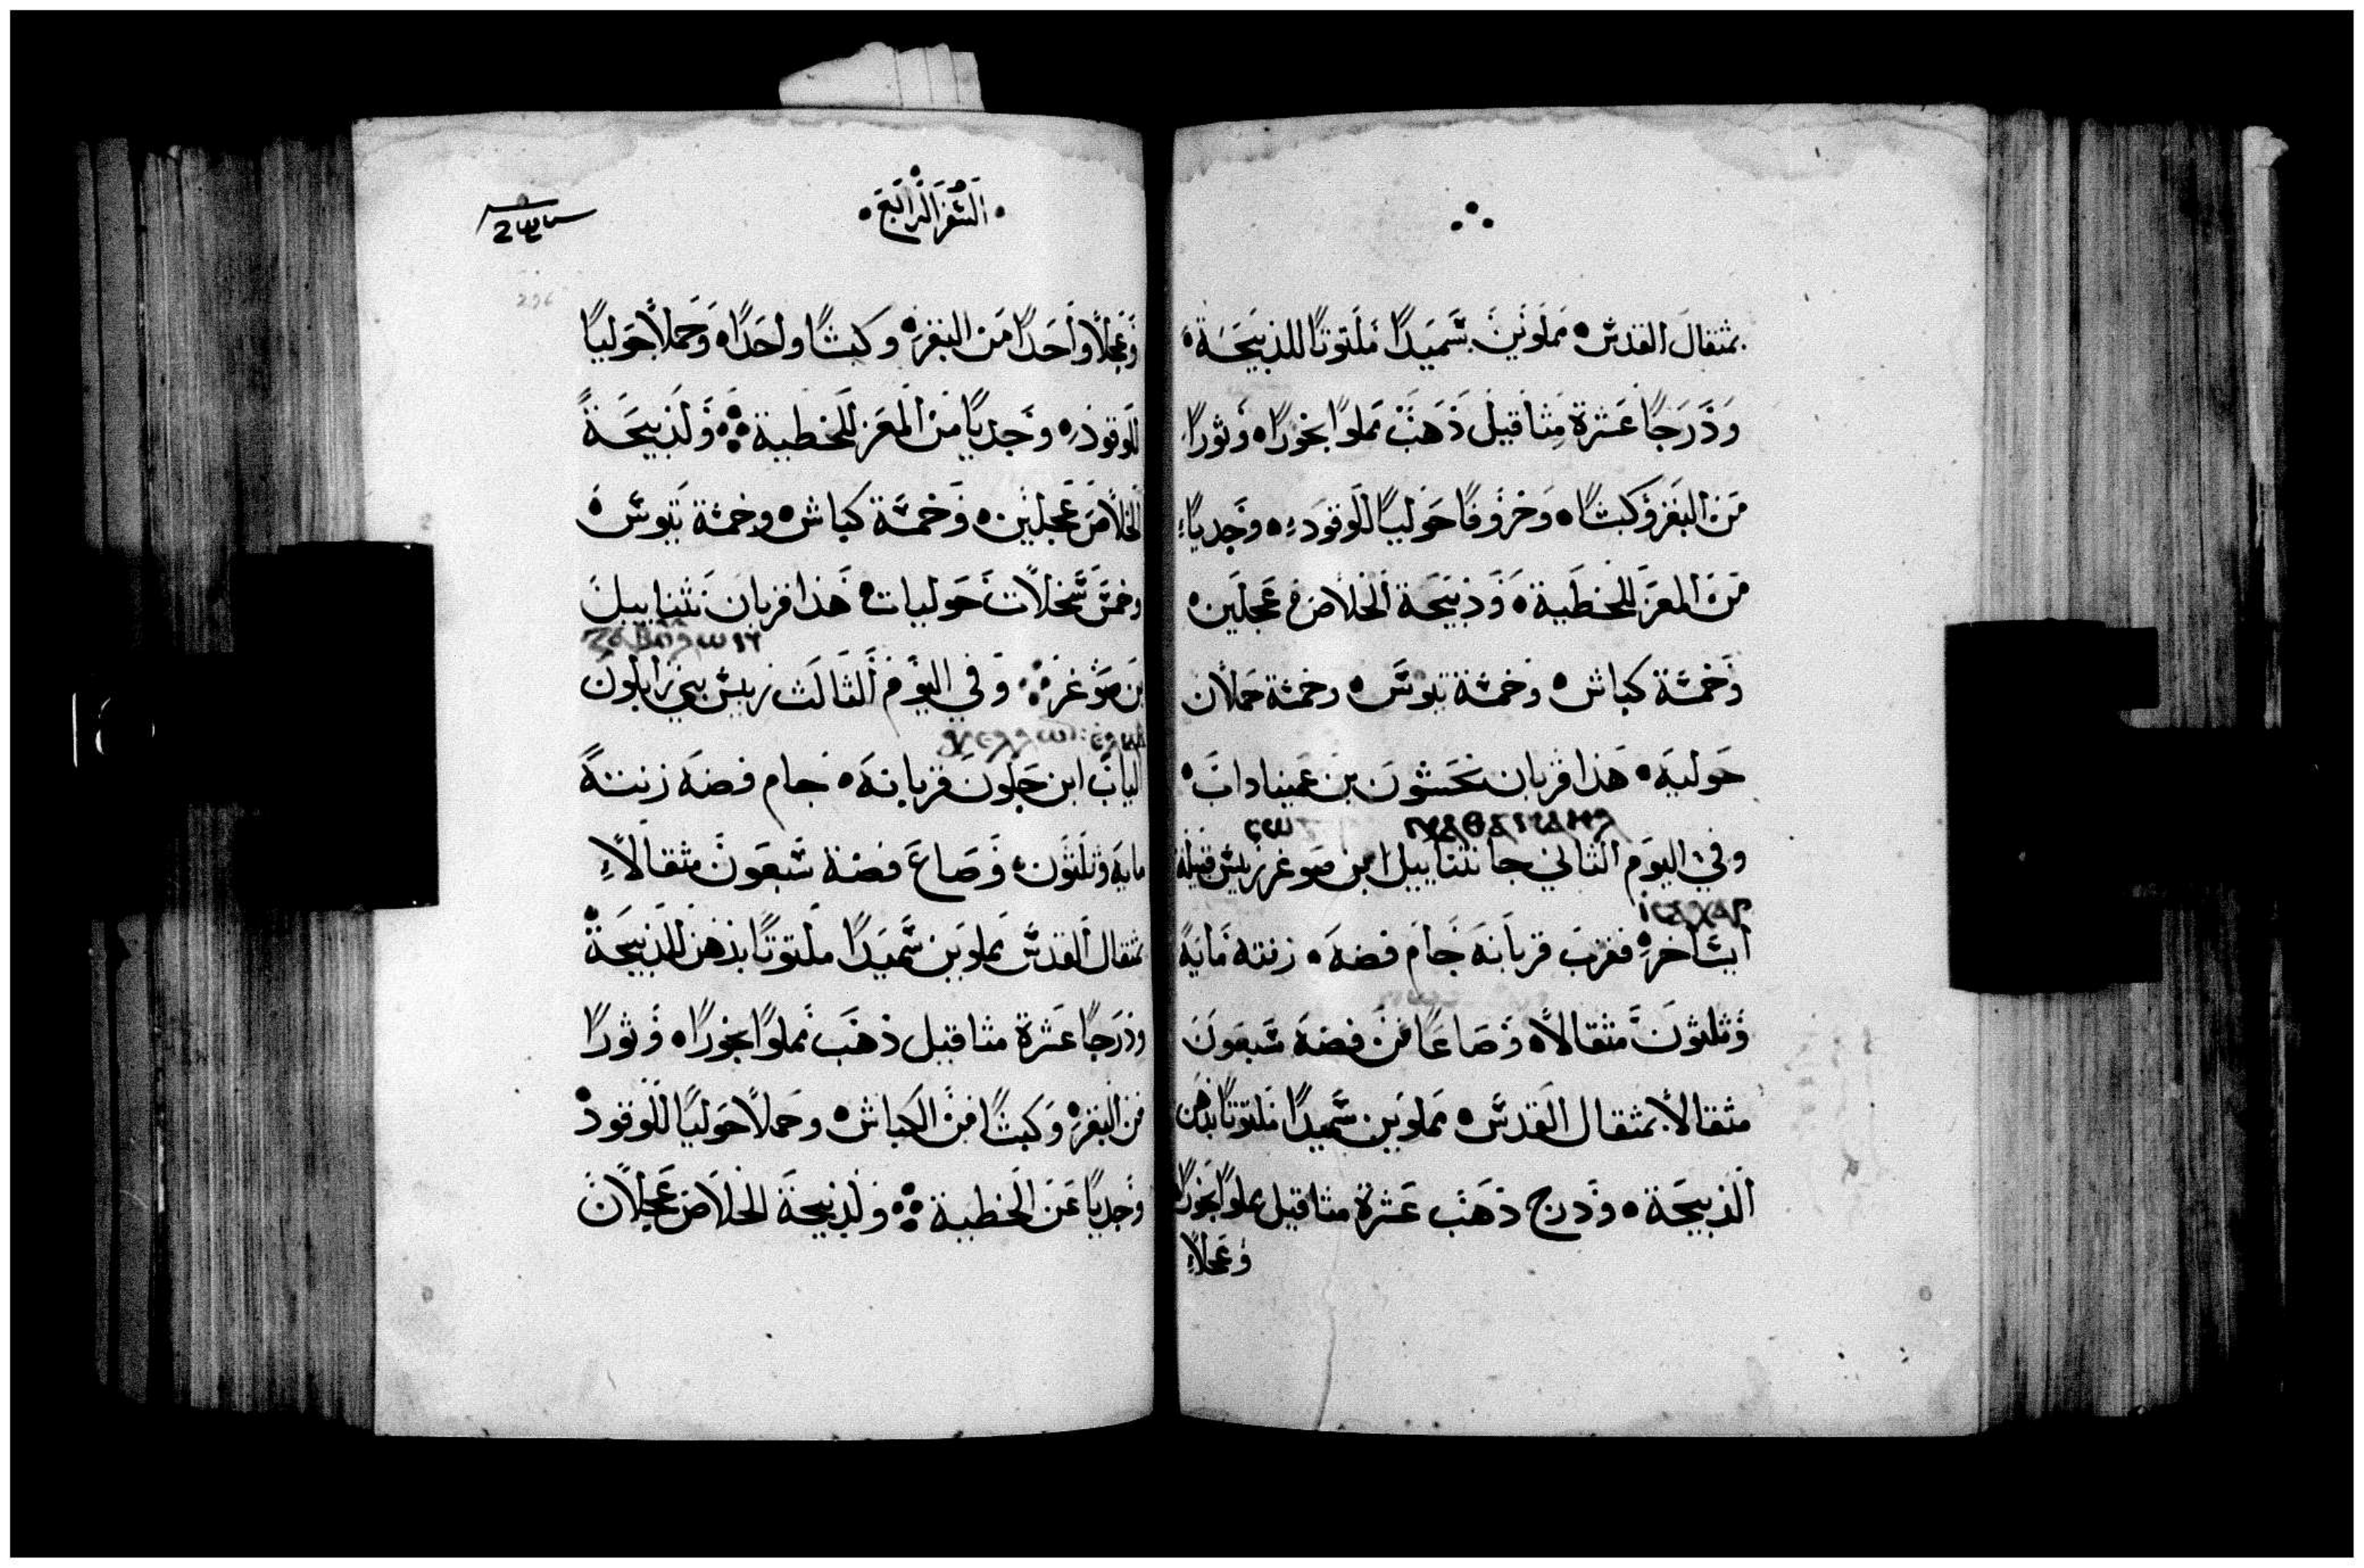 بمثقال القدس ه مملوتين سميدًا ملتوتًا للذبيحة ه
وَدَرجًا عشرة مثاقيل ذهب مملوًا بخورًا ه وثورًا
من البقر وكبشًا ه وخروفًا حوليًا للوقود ه وجديًا
من المعز للخطية ه وذبيحة الخلاص عجلين ه
وخمسة كباش ه وخمسة تيوس ه وخمسة حملان
حوليه ه هذا قربان نحشون بن عميناداب ه
ⲛⲁⲑⲁⲛⲁⲏⲗ
وفي اليوم الثاني جا نثناييل ابن صوغر رييس قبيلة
ⲓⲥⲁⲭⲁⲣ
ايساخر ه فقرب قربانه جام فضه ه زنته مايه
وثلثون مثقالًا ه وصاعًا من فضه سبعون
مثقالًا بمثقال القدس ه مملوين سميدًا ملتوتًا بدهن
الذبيحة ه ودرج ذهب عشرة مثاقيل مملوًا بخورًا
وعجلاً
السفر الرابع
وعجلًا واحدًا من البقر ه وكبشًا واحدًا ه وحملًا حوليًا
للوقود ه وجديًا من المعز للخطية ولذبيحة
الخلاص عجلين ه وخمسة كباش ه وخمسة تيوس ه
وخمس سخلات حوليات ه هذا قربان نثناييل
بن صوغر وفي اليوم الثالث رييس بني زابلون
الياب ابن حلون قربانه ه جام فضه زنته
مايه وثلثون ه وصاع فضة سبعون مثقالًا
بمثقال القدس مملوين سميدًا ملتوتًا بدهن للذبيحة
ودرجًا عشرة مثاقيل ذهب مملوًا بخورًا ه وثورًا
من البقر ه وكبشًا من الكباش ه وحملًا حوليًا للوقود
وجديًا عن الخطية ولذبيحة الخلاص عجلان